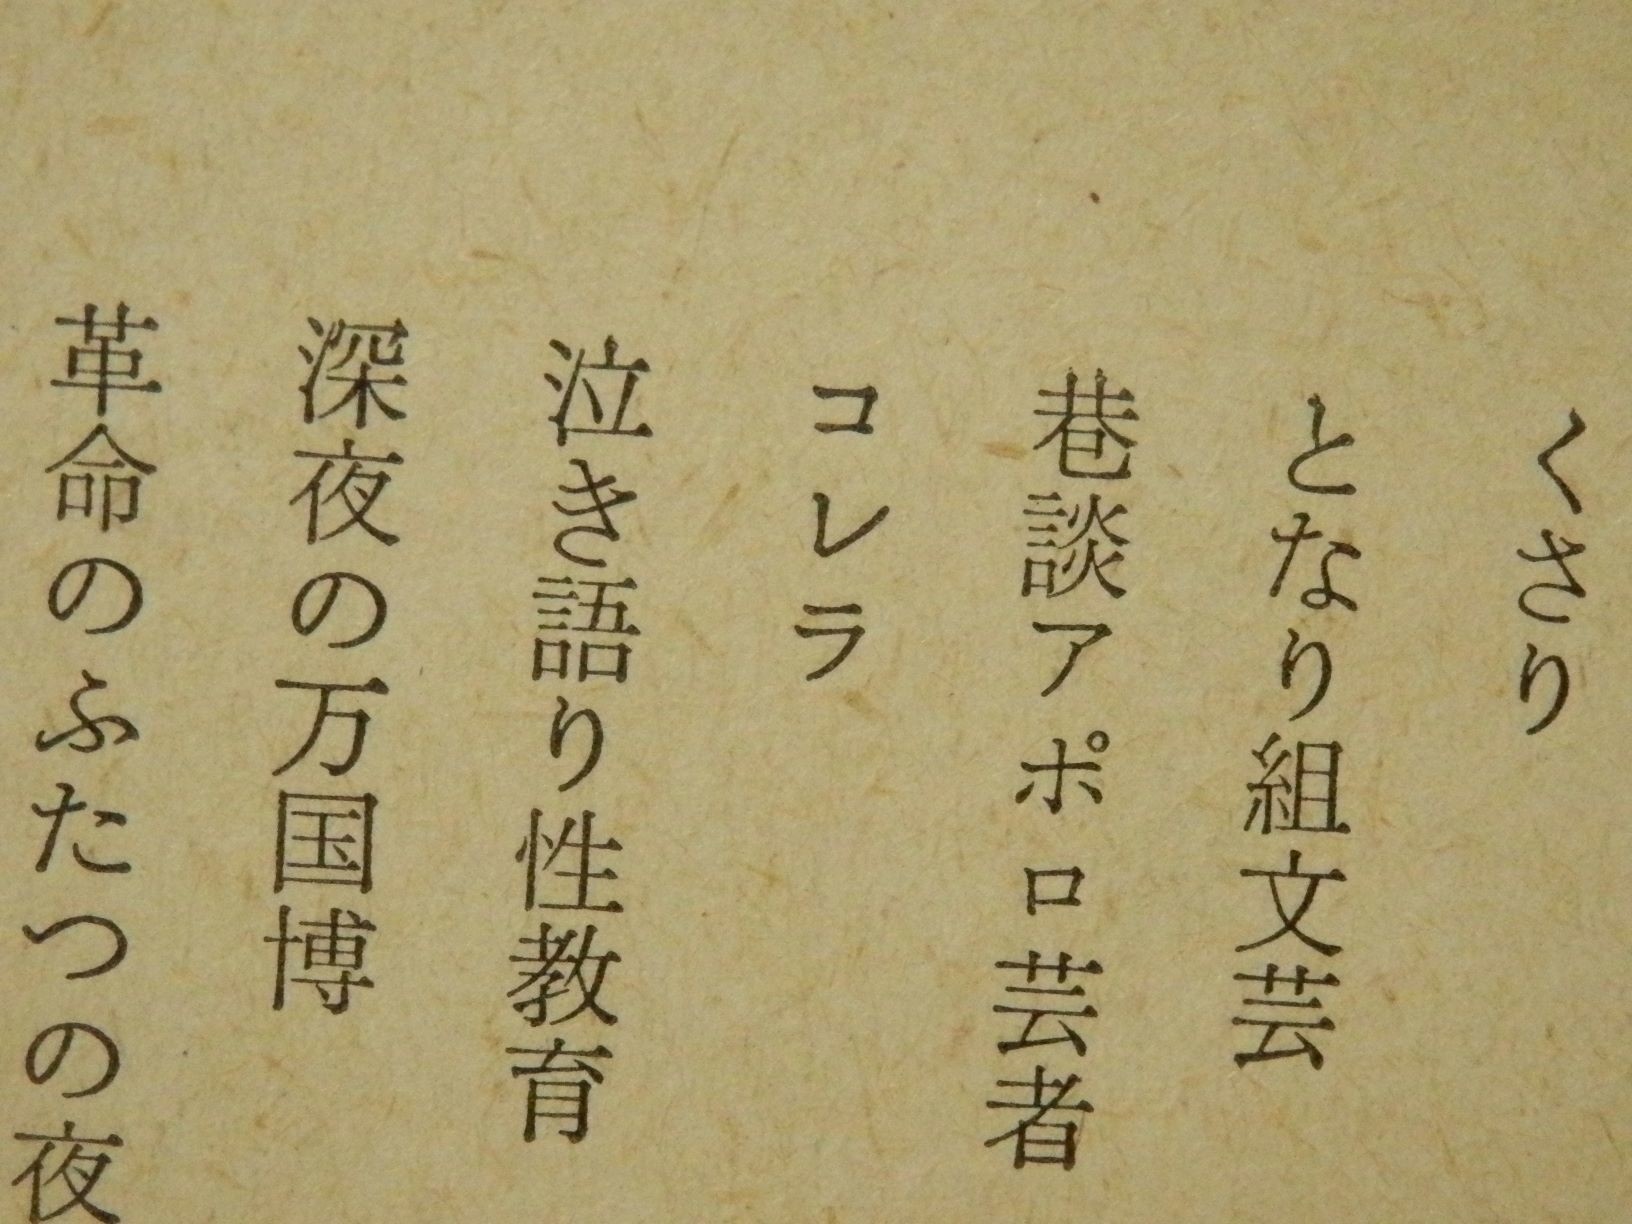 くさり
となり組文芸
巷談アポロ芸者
コレラ
泣き語り性教育
深夜の万国博
革命のふたつの夜